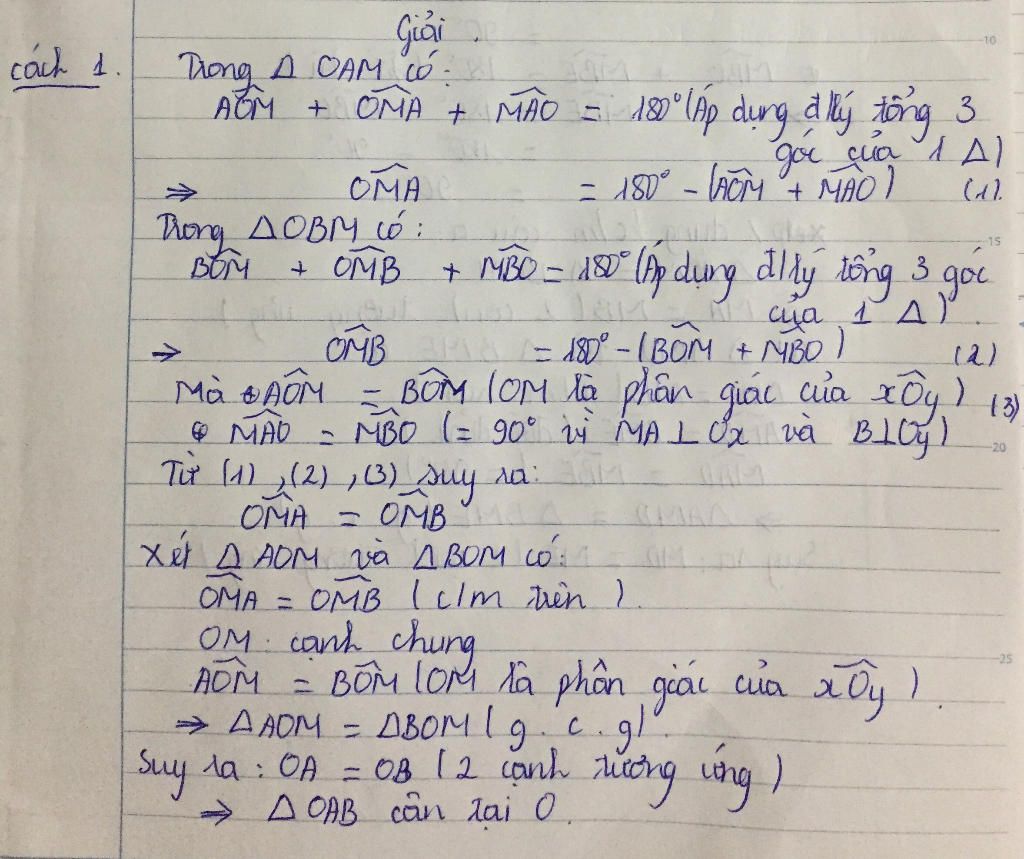 Giải.
cách 1. Trong Δ OAM có:
AÔM + OM̂A + MÂO = 180° (Áp dụng đ/lý tổng 3
góc của 1 Δ)
⇒ OM̂A = 180° - (AÔM + MÂO) (1).
Trong ΔOBM có:
BÔM + OM̂B + MB̂O = 180° (Áp dụng đ/lý tổng 3 góc
của 1 Δ).
⇒ OM̂B = 180° - (BÔM + MB̂O) (2)
Mà + AÔM = BÔM (OM là phân giác của xÔy) (3)
+ MÂO = MB̂O (= 90° vì MA ⊥ Ox và B ⊥ Oy)
Từ (1), (2), (3) suy ra:
OM̂A = OM̂B
Xét Δ AOM và ΔBOM có:
OM̂A = OM̂B (c/m trên).
OM: cạnh chung
AÔM = BÔM (OM là phân giác của xÔy).
⇒ ΔAOM = ΔBOM (g.c.g).
Suy ra: OA = OB (2 cạnh tương ứng)
⇒ Δ OAB cân tại O.
10
15
20
25